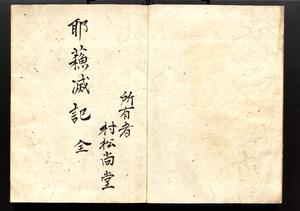 耶蘓滅記 全
所有者
村松尚堂